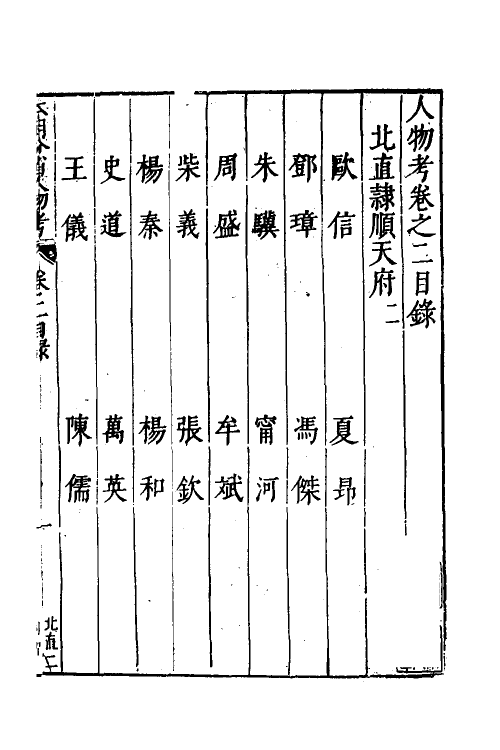 人物考卷之二目錄
北直隸順天府二
歐信 夏昂
鄧璋 馮傑
朱驥 甯河
周盛 牟斌
柴義 張欽
楊秦 楊和
史道 萬英
王儀 陳儒
人物考 卷二目錄
北直二